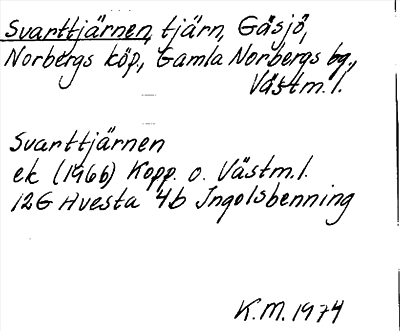 Svarttjärnen, tjärn, Gäsjö,
Norbergs köp., Gamla Norbergs bg.,
Västm.l.
Svarttjärnen
ek (1966) Kopp. o. Västm.l.
12G Avesta 4b Ingolsbenning
K.M. 1974